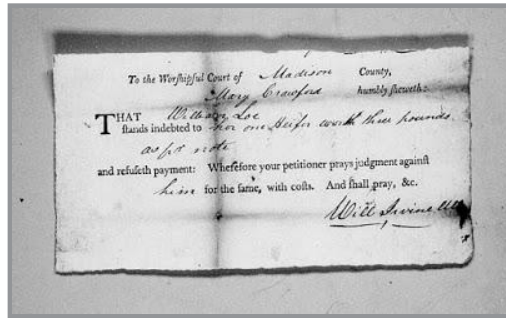 To the Worſhipful Court of Madison County,
Mary Crawford humbly ſheweth:
THAT William Loe
ſtands indebted to her one Heifer worth three pounds
as pr note
and refuſeth payment: Wherefore your petitioner prays judgment againſt
him for the ſame, with coſts. And ſhall pray, &c.
Will Irvine